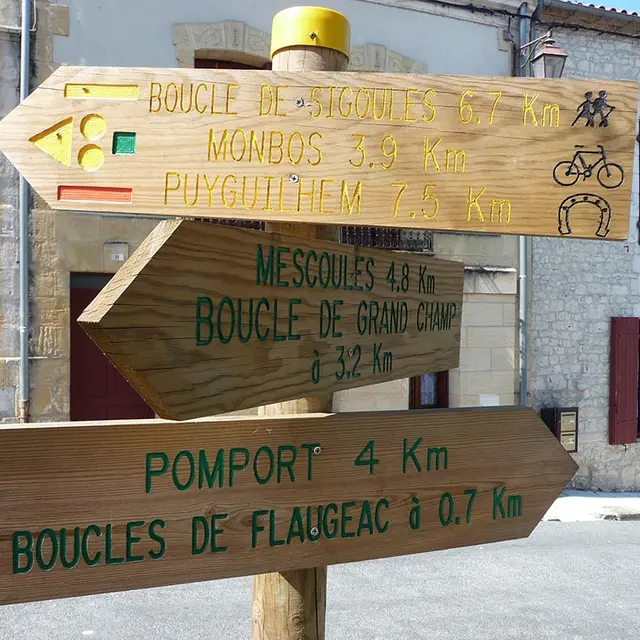 BOUCLE DE SIGOULES 6.7 Km
MONBOS 3.9 Km
PUYGUILHEM 7.5 Km
MESCOULES 4.8 Km
BOUCLE DE GRAND CHAMP
à 3.2 Km
POMPORT 4 Km
BOUCLES DE FLAUGEAC à 0.7 Km